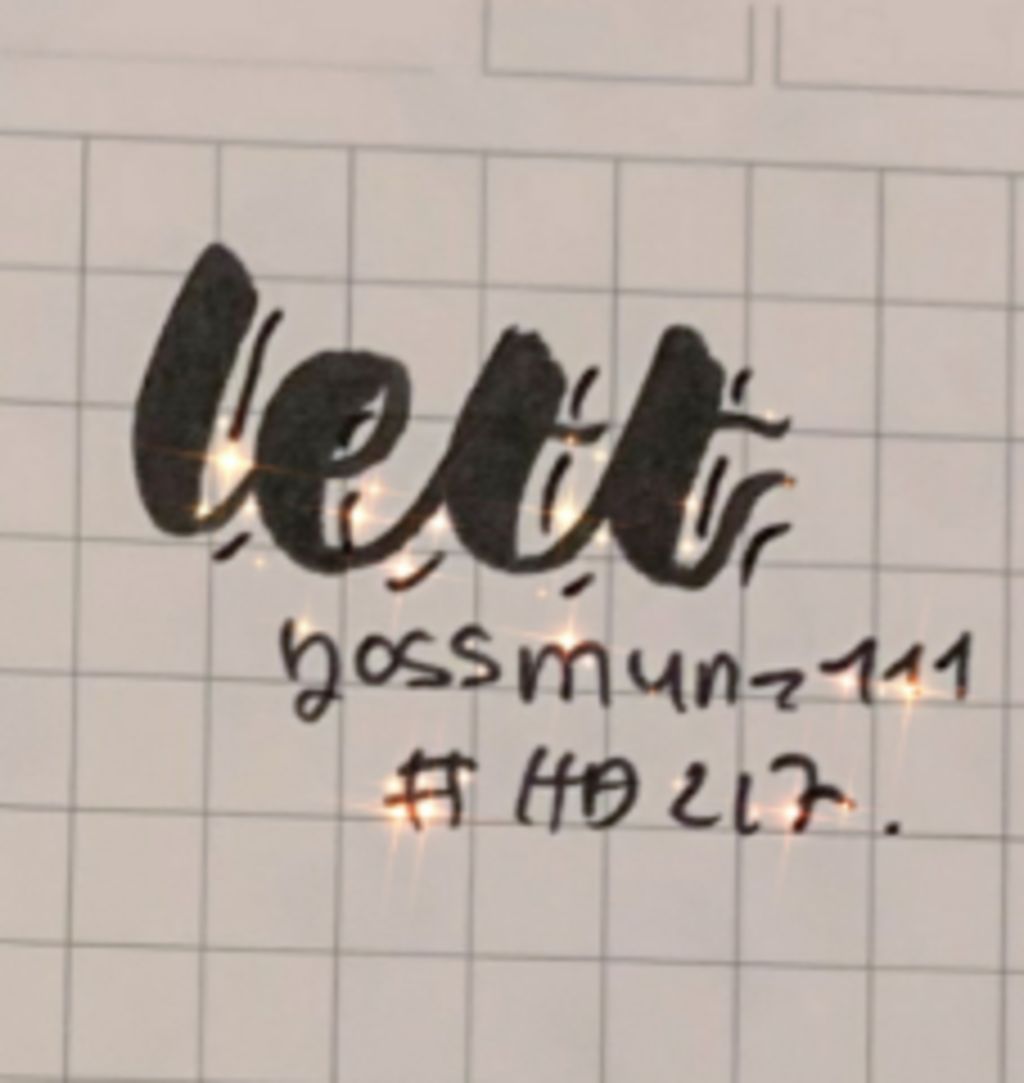 lett
bossmunz111
#HB217.